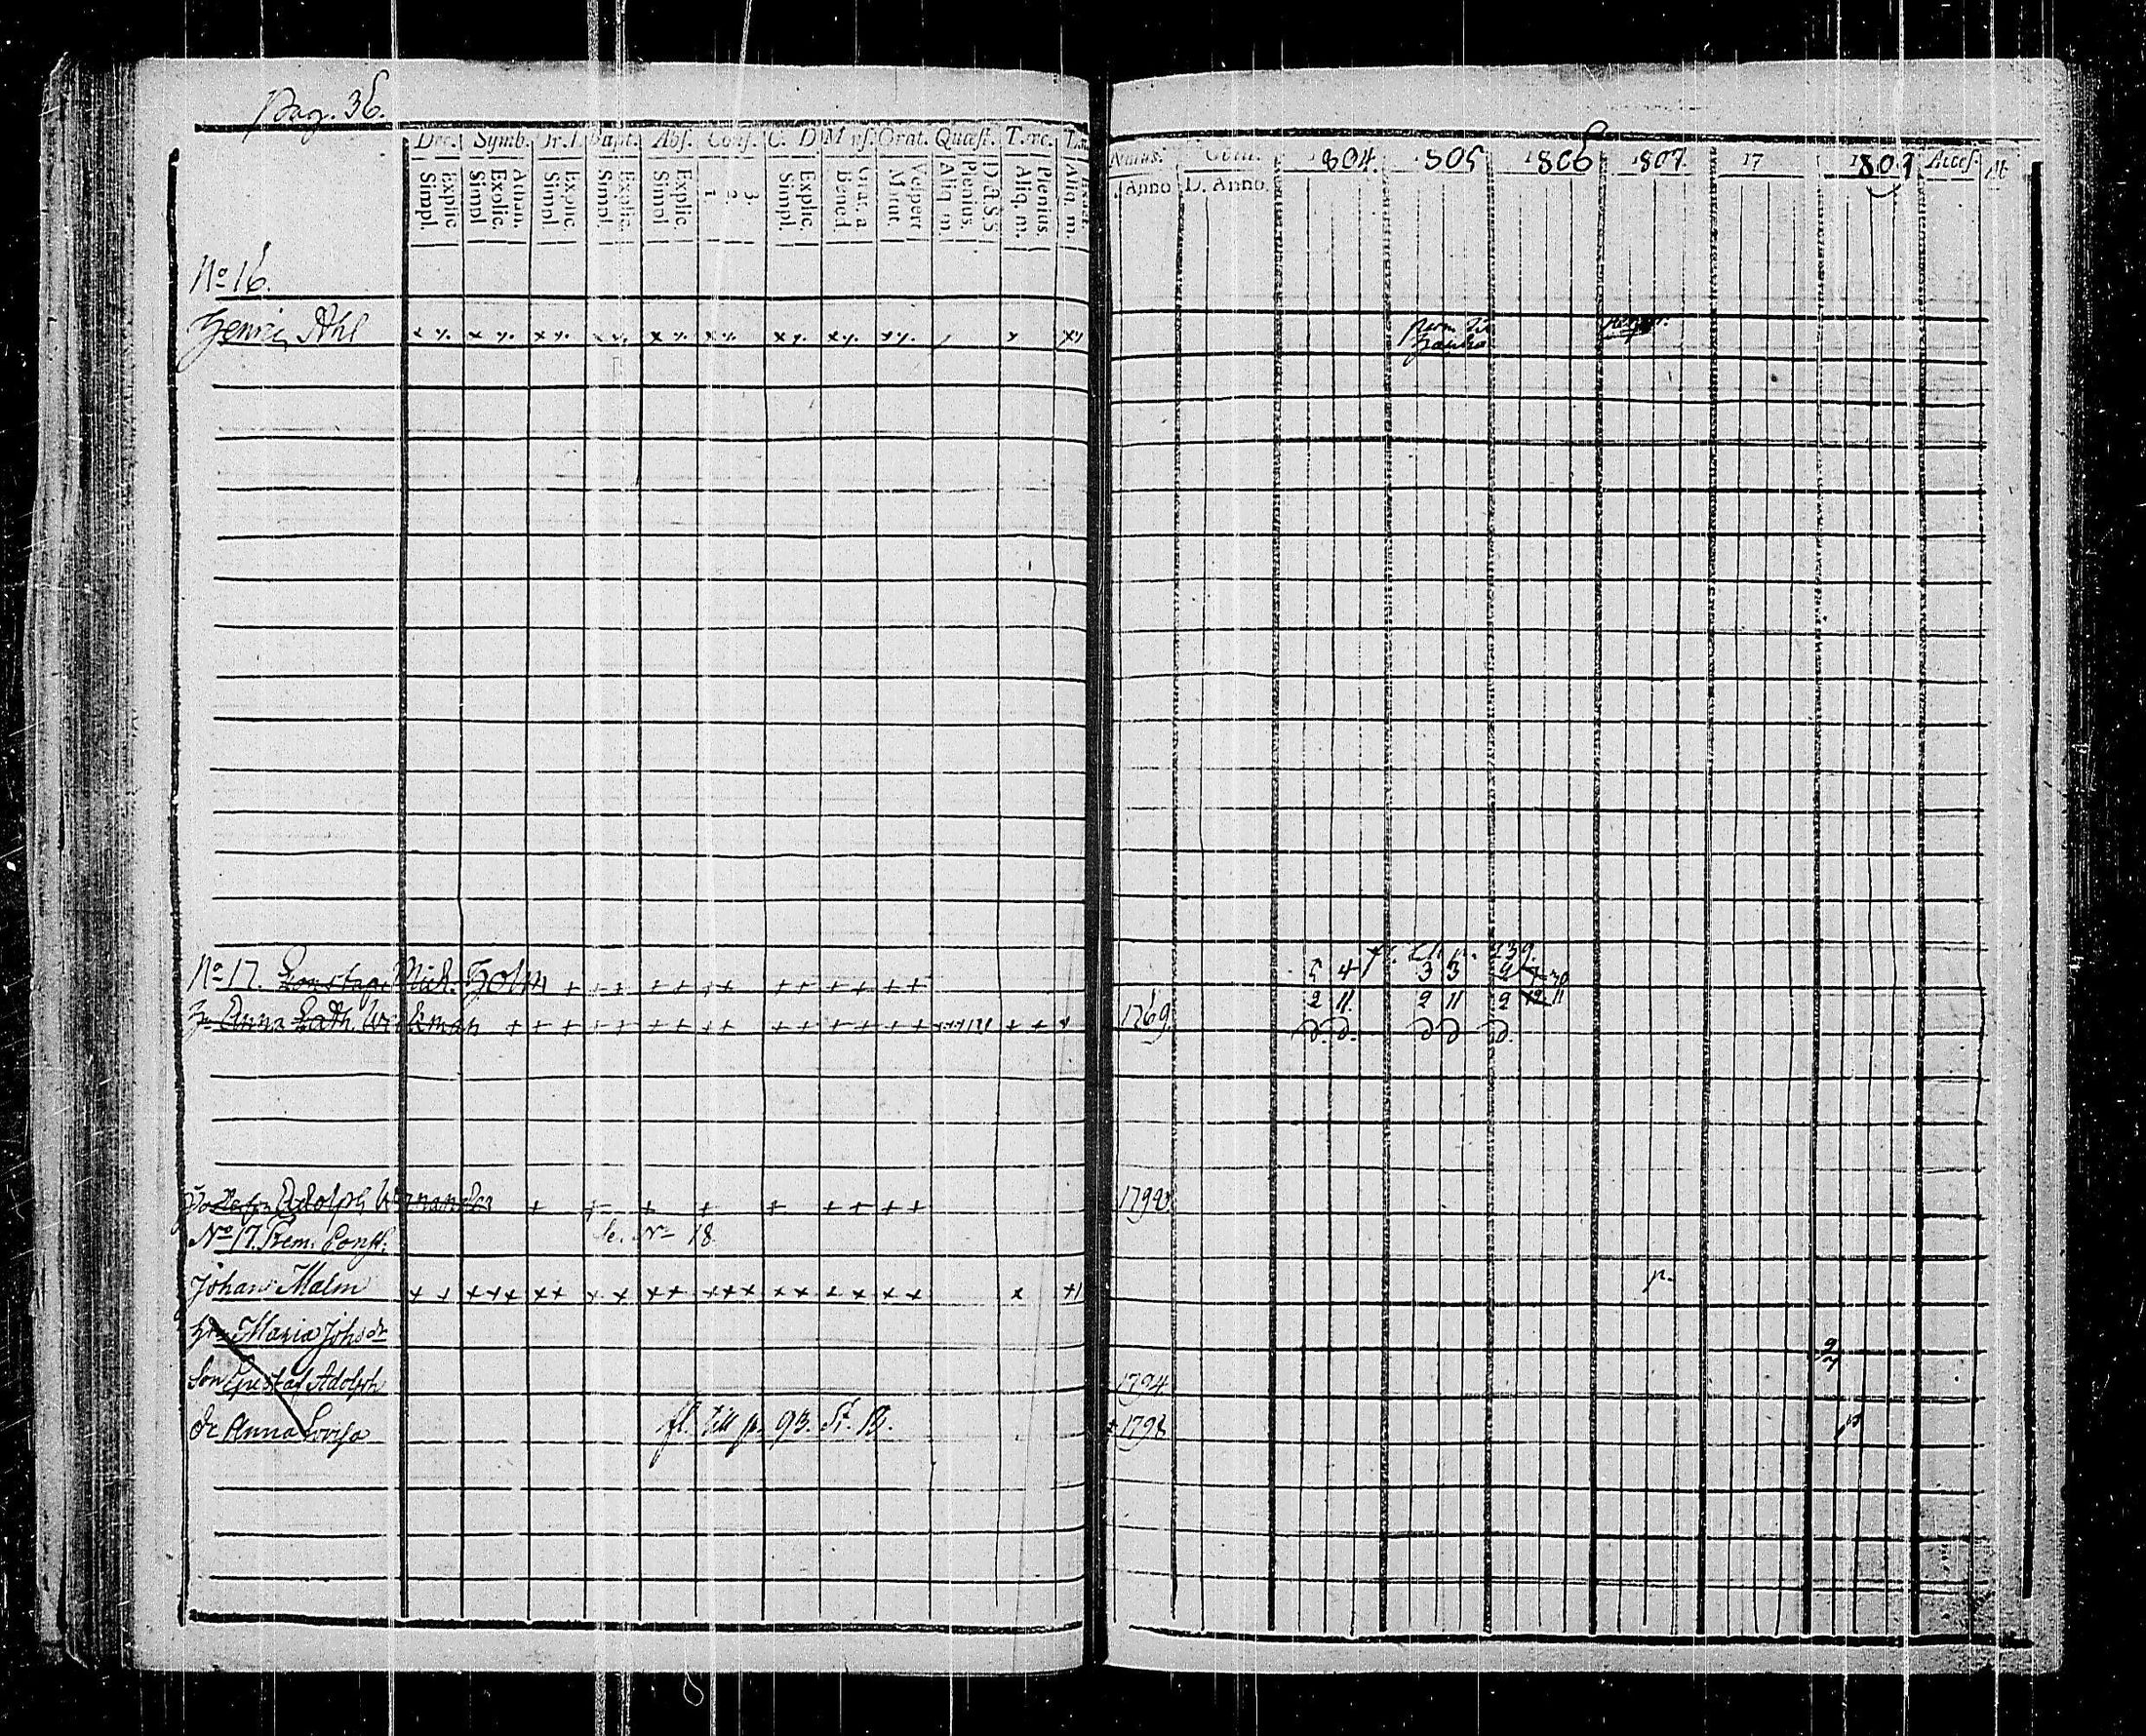 Pag. 36.
Dec. Symb. Or. D. Bapt. Abs. Conf. C. D Mens. Orat. Quæst. T. rc.
Explic Simpl. Athan. Explic. Simpl Explic Simpl Explic. Simpl. Explic Simpl 3. 2. 1 Explic. Simpl. Grat. a Bened Vespert Matut. D.a.S.S Plenius. Aliq m. Plenius. Aliq. m. Aliq. m.
Natus. Com. 1804. 1805 1806 1807 17 1809 Acces.
Anno D. Anno.
No 16.
Henric Ahl
No 17. Mich. Holm
5 4 3 3
2 11 2 11 2 12 11
Anna Cath. Weckman 1769
Adolph 1792
No 17. Prem. Const. Se. No 18
Johan Malm p.
Hu Maria Johs dr
9 7
Son Gustaf Adolph 1794
Dr Anna Lovisa fl. till p. 93. St. B. + 1798